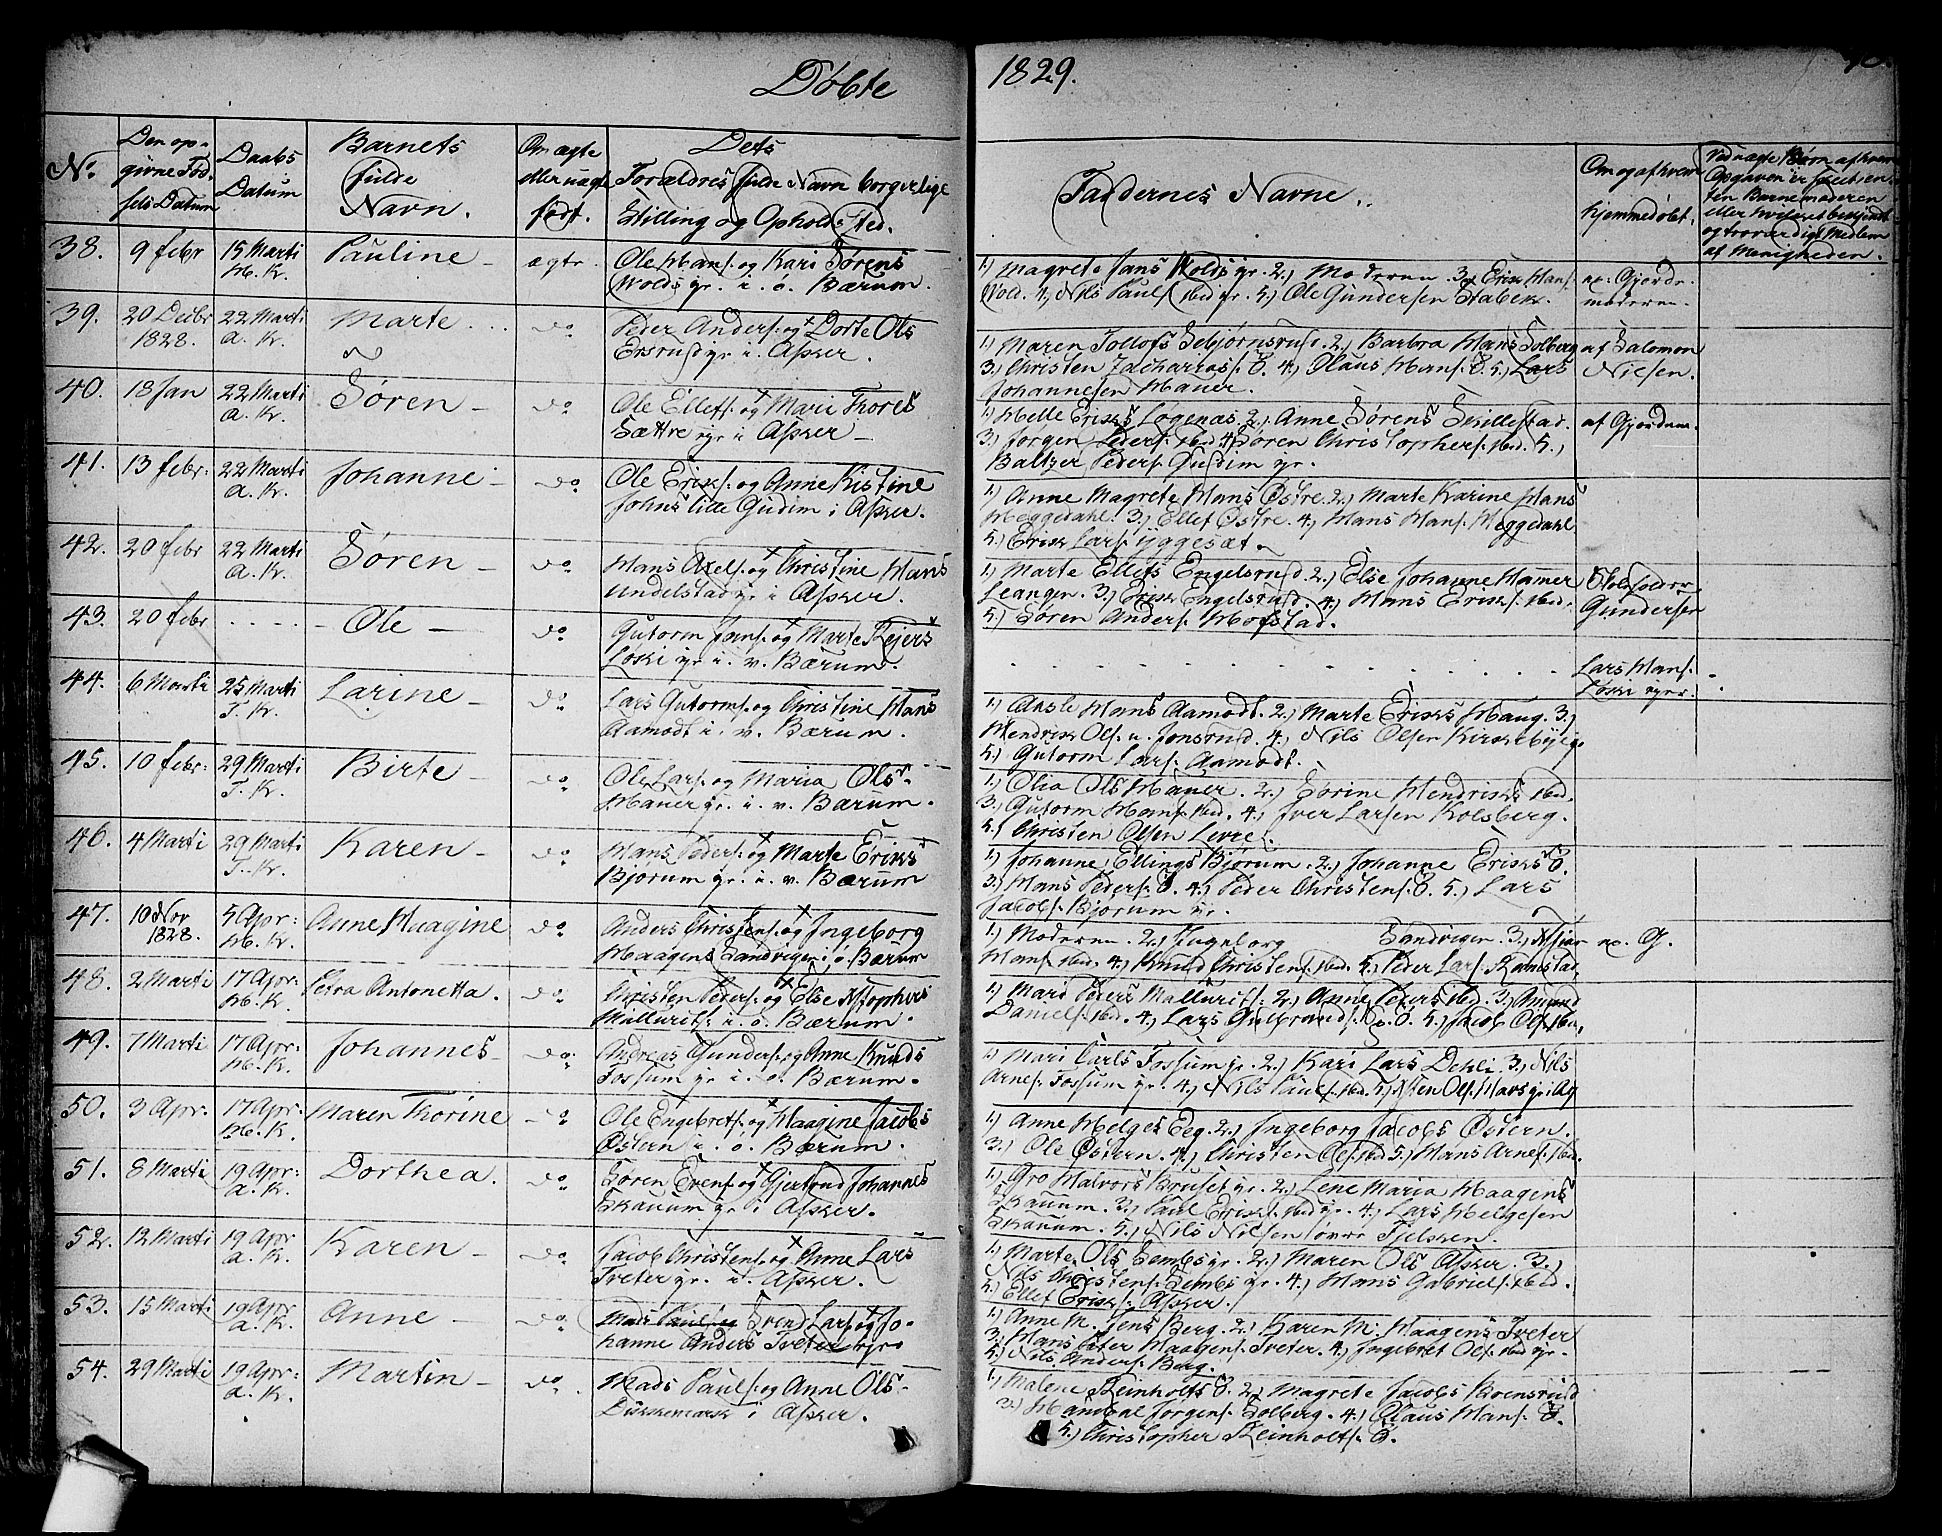 Døbte 1829.
No.
Den op-
givne Fød-
sels Datum
Daabs
Datum
Barnets
fulde
Navn.
Om ægte
eller uægte
født.
Dets
Forældres fulde Navn borgerlige
Stilling og Opholds Sted.
Faddernes Navne.
Om og af hvem
hjemmedøbt.
Ved uægte Børn af hvem
Opgaven er skeet en-
ten Barnemoderen
eller hvilket bekjendt
og troværdigt Medlem
af Menigheden.
38. 9 febr 15 Marti Pauline ægte. Ole Hans. og Kari Sørens
H. K. Wolds gr. i. ø. Bærum.
1.) Magrete Jans Wolds gr. 2.) Moderen. 3.) Erik Hans.
Wold. 4.) Nils Pauls. ibid gr. 5.) Ole Gundersen Stabek.
ex. Gjorde-
moderen.
39. 20 Decbr 22 Marti Marte do Peder Anders. og Dorte Ols
1828. A. K. Ersrud gr. i. Asker.
1.) Maren Tollofs Sebjørnsrud. 2.) Barbra Hans Solberg
3.) Christen Zacharias. S. 4.) Olaus Hans. S. 5.) Lars
Johannesen Hauer.
af Salomon
Nilsen.
40. 18 Jan 22 Marti Søren do Ole Ellefs. og Mari Thores
A. K. Sættre gr. i Asker
1.) Helle Eriks Løgenæs 2.) Anne Sørens Skillestad.
3.) Jørgen Peders. ibid 4.) Søren Christophers. ibid. 5.)
Baltzer Peders. Gudim gr.
af Gjordem.
41. 13 febr: 22 Marti Johanne do Ole Eriks. og Anne Kistine
A. K. Johns lille Gudim i Asker.
1.) Anne Magrete Hans Østre. 2.) Marte Karine Hans
Heggedahl. 3.) Ellef Østre. 4.) Hans Hans. Heggedahl
5.) Erik Lars. Yggesæt.
42. 20 febr 22 Marti Søren do Hans Axels. og Christine Hans
A. K. Undelstad gr i Asker.
1.) Marte Ellefs Engelsrud. 2.) Else Johanne Hammer
Leangen. 3.) Erik Engelsrud. 4.) Hans Eriks. ibid.
5.) Søren Anders. Hofstad.
Gundersen
43. 20 febr Ole do Gutorm Jans. og Marte Rejers
Løski gr i. v. Bærum.
Lars Hans.
Løski gr.
44. 6 Marti 25 Marti Larine do Lars Gutorms. og Christine Hans
T. K. Aamodt i. v. Bærum.
1.) Aksle Hans Aamodt. 2.) Marte Eriks Haug. 3.)
Hendrik Ols. u. Jonsrud. 4.) Nils Olsen Kirkebye gr.
5.) Gutorm Lars. Aamodt.
45. 10 febr: 29 Marti Birte do Ole Lars. og Maria Ols
T. K. Hauer gr. i. v. Bærum.
1.) Olia Ols Hauer. 2.) Sorine Hendriks ibid.
3.) Gutorm Hans. ibid. 4.) Iver Larsen Kolsberg.
5.) Christen Olsen Levre.
46. 4 Marti 29 Marti Karen do Hans Peders. og Marte Eriks
T. K. Bjorum gr. i. v. Bærum
1.) Johanne Ellings Bjorum. 2.) Johanne Eriks S.
3.) Hans Peders. S. 4.) Peder Christens. S. 5.) Lars
Jacobs. Bjorum gr.
47. 10 Nov 5 Apr: Anne Haagine do Anders Christens. og Ingeborg
1828. H. K. Haagens Sandvigen i. ø. Bærum
1.) Moderen. 2.) Ingeborg Sandvigen. 3.)
Hans. ibid. 4.) Knud Christens. ibid. 5.) Peder Lars. Ramstad
ex. G.
48. 2 Marti 17 Apr: Petra Antonetta. do Christen Peders. og Else Xstophers
H. K. Mallurits. i. ø. Bærum.
1.) Mari Peders Mallurits. 2.) Anne Peders ibid. 3.) Amund
Daniels. ibid. 4.) Lars Gulbrands. S. 5.) Jacob Ols. ibid.
49. 7 Marti 17 Apr: Johannes do Andreas Gunders. og Anne Knuds
H. K. Fossum gr i. ø. Bærum.
1.) Mari Carls Fossum gr. 2.) Kari Lars Dehli. 3.) Nils
Arnes. Fossum gr. 4.) Nils Pauls. ibid. 5.) Xsten Ols.
50. 3 Apr: 17 Apr: Maren Thorine do Ole Engebrets. og Haagine Jacobs
H. K. Østern i. ø. Bærum.
1.) Anne Helges Eeg. 2.) Ingeborg Jacobs Østern.
3.) Ole Østern. 4.) Christen Ols. ibid 5.) Hans Arnes. ibid.
51. 8 Marti 19 Apr: Dorthea do Søren Erens. og Gjertrud Johannes
A. K. Skauum gr i Asker.
1.) Gro Halvors Bruset gr. 2.) Lene Maria Haagens
Skauum. 3.) Paul Eriks. ibid gr. 4.) Lars Helgesen
Skauum. 5.) Nils Nilsen øvre Fjelsken.
52. 12 Marti 19 Apr Karen do Jacob Christens. og Anne Lars
A. K. Tveter gr. i. Asker.
1.) Marte Ols Sembs gr. 2.) Maren Ols Asker. 3.)
Nils Christens. Sembs gr. 4.) Hans Gabriels. ibid.
5.) Ellef Eriks. Asker.
53. 15 Marti 19 Apr Anne do Mads Pauls. og Svend Lars. og Jo-
A. K. hanne Anders Tveter gr
1.) Anne M. Jens Berg. 2.) Karen M. Haagens Tveter
3.) Hans Peter Haagens. Tveter. 4.) Ingebret Ols. ibid gr.
5.) Nils Anders. Berg.
54. 29 Marti 19 Apr: Martin do Mads Pauls. og Anne Ols
A. K. Dikkemark i Asker.
1.) Malene Reinholts S. 2.) Magrete Jacobs Roensrud
3.) Jørgens. Solberg. 4.) Olaus Hans. S.
5.) Christopher Reinholts. S.